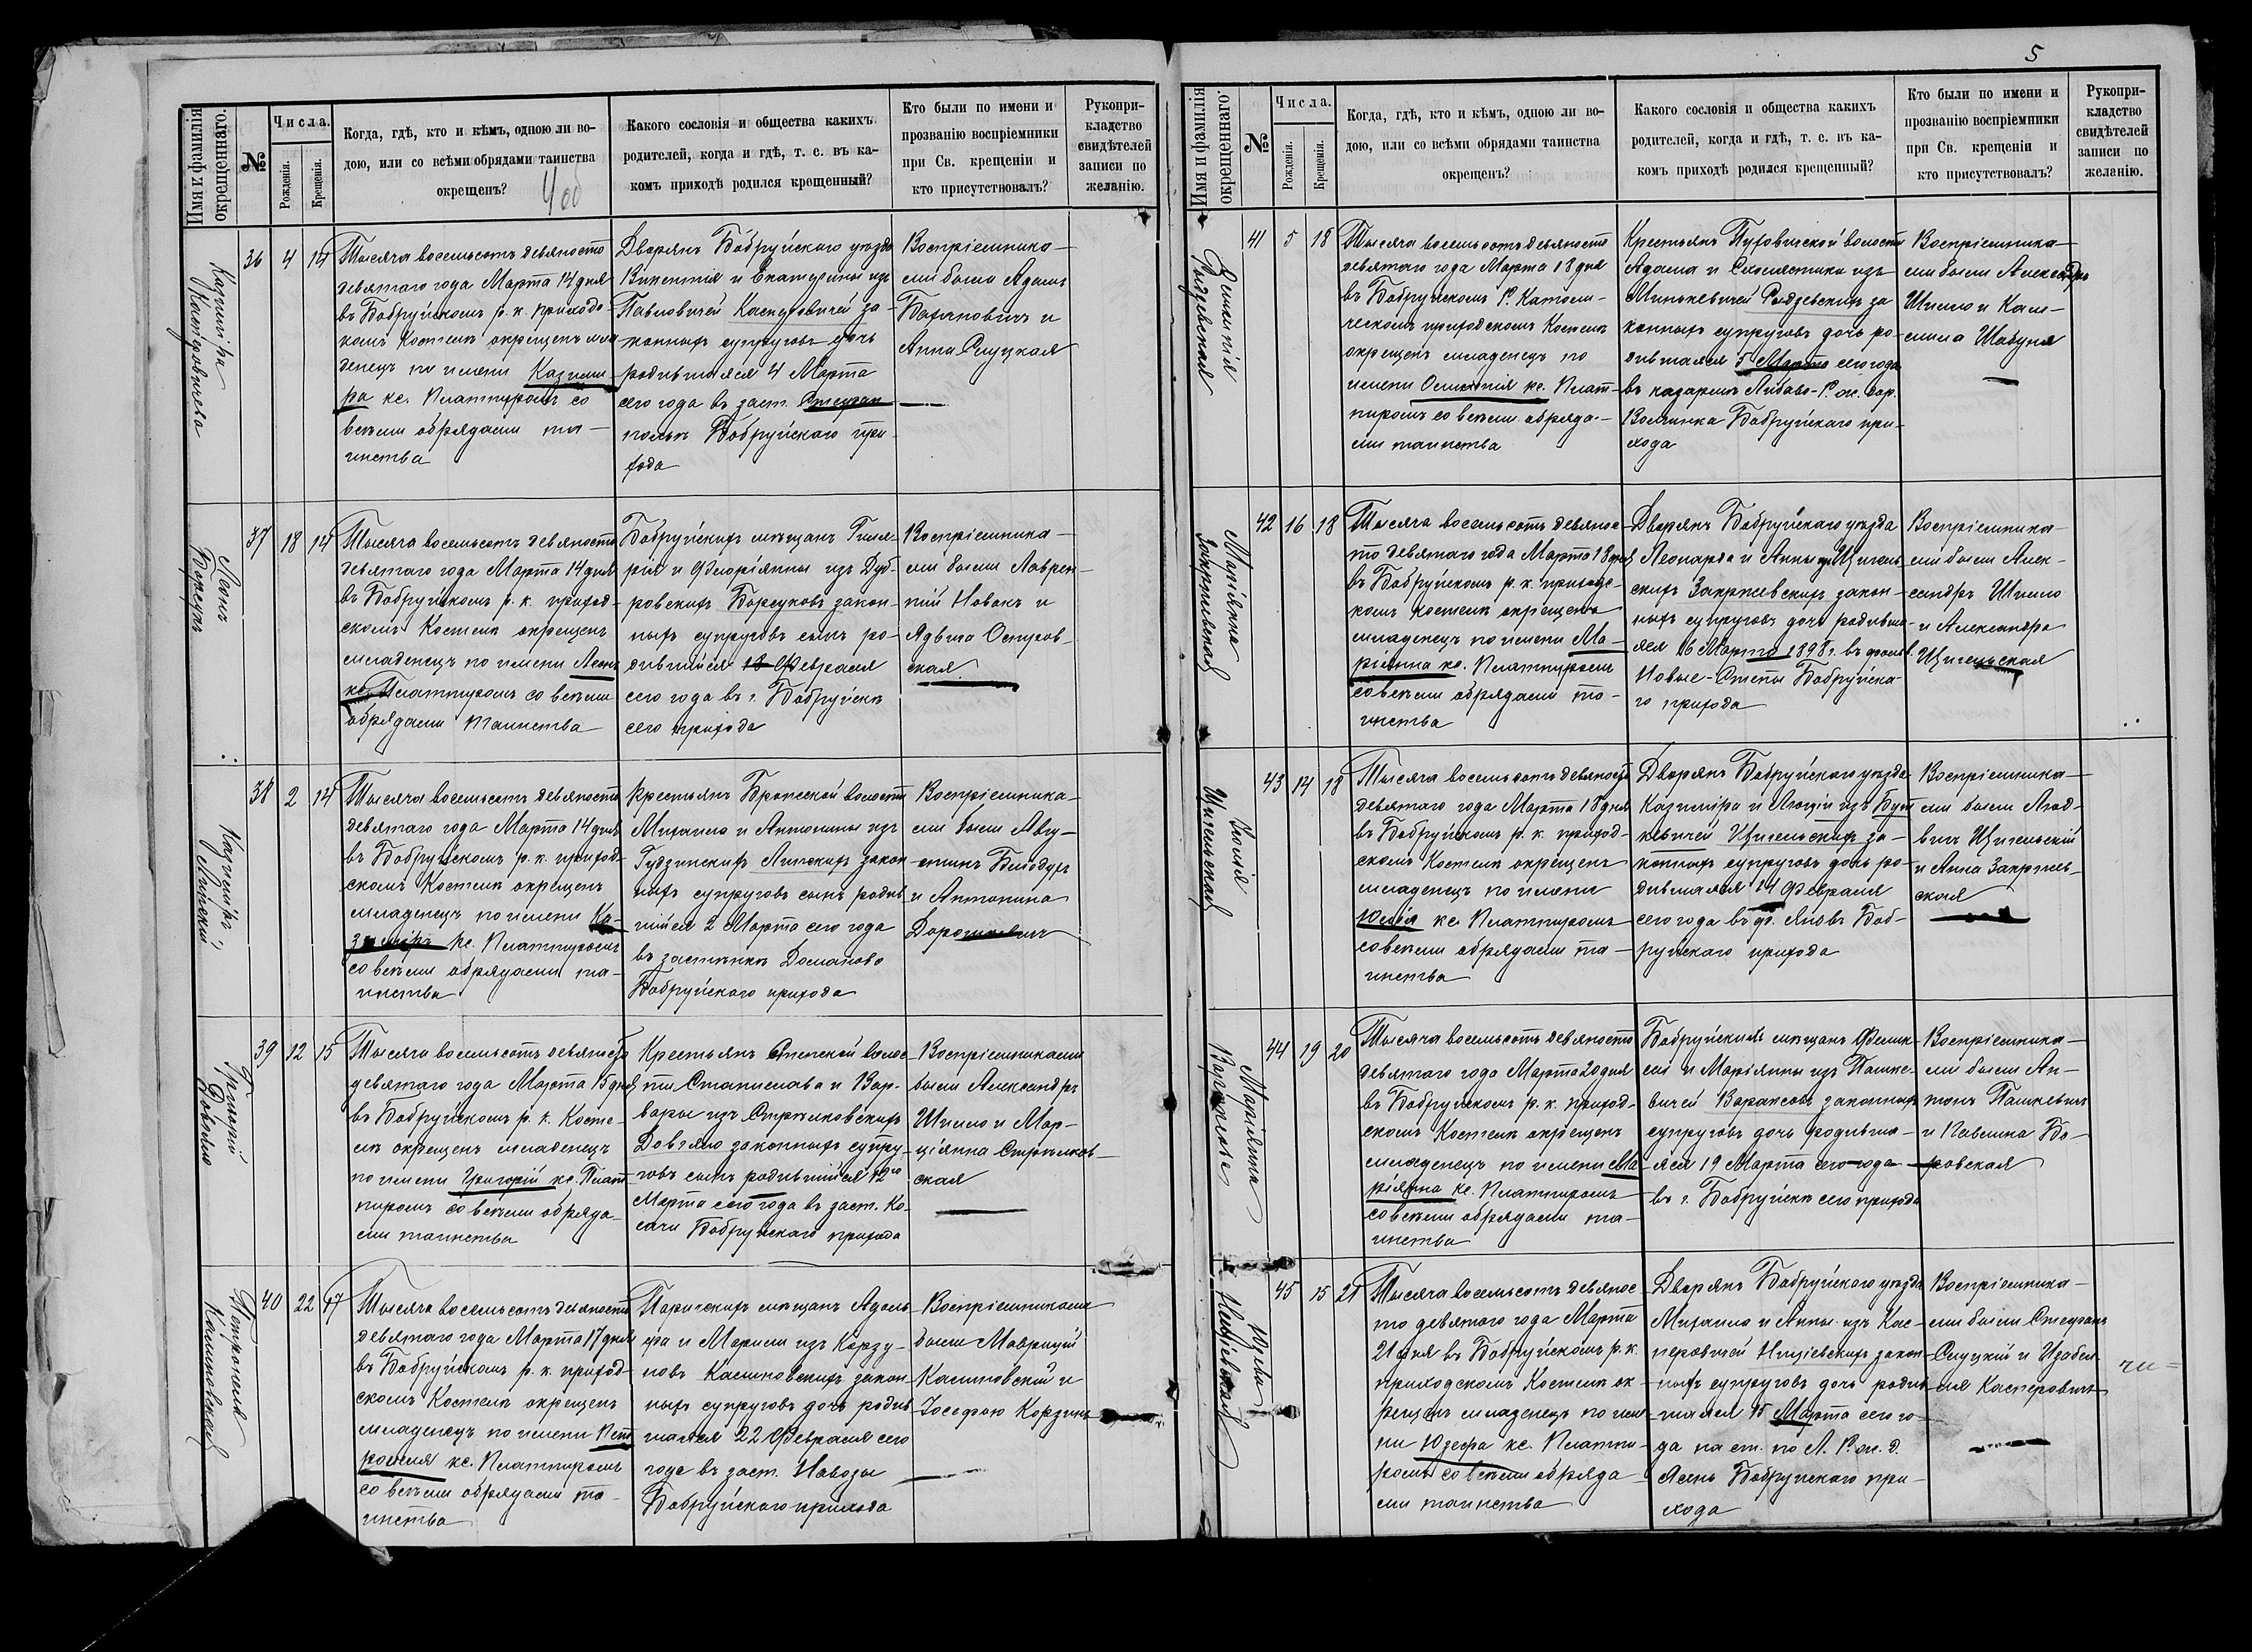 Имя и фамилія окрещеннаго.
№
Числа.
Рожденія.
Крещенія.
Когда, гдѣ, кто и кѣмъ, одною ли во-
дою, или со всѣми обрядами таинства
окрещенъ?
Какого сословія и общества какихъ
родителей, когда и гдѣ, т. е. въ ка-
комъ приходѣ родился крещенный?
Кто были по имени и
прозванію воспріемники
при Св. крещеніи и
кто присутствовалъ?
Рукопри-
кладство
свидѣтелей
записи по
желанію.
4об
Казиміра
36 4 14
Тысяча восемьсотъ девяносто
девятаго года Марта 14 дня
въ Бобруйскомъ р. к. приходс-
комъ Костелѣ окрещенъ мла
денецъ по имени Казими-
ра кс. Пляттиромъ со
всѣми обрядами та-
инства
Дворянъ Бобруйскаго уѣзда
Викентія и Екатерины изъ
Павловичей за-
конныхъ супруговъ дочь
родившаяся 4 Марта
сего года въ заст. Стефан
полѣ Бобруйскаго при-
хода
Воспріемника-
ми были Адамъ
и
Анна Слуцкая
Леонъ
Борсукъ
37 18 14
Тысяча восемьсотъ девяносто
девятаго года Марта 14 дня
въ Бобруйскомъ р. к. приход-
скомъ Костелѣ окрещенъ
младенецъ по имени Леонъ
кс. Пляттиромъ со всѣми
обрядами таинства
Бобруйскихъ мѣщанъ Гиля-
рія и Флоріянны изъ Дуб-
ровскихъ Борсуковъ закон-
ныхъ супруговъ сынъ ро-
дившійся 18 Февраля
сего года въ г. Бобруйскѣ
сего прихода
Воспріемника-
ми были Лаврен-
тій Новакъ и
Ядвига Островс-
кая
Казиміръ
Липскій
38 2 14
Тысяча восемьсотъ девяносто
девятаго года Марта 14 дня
въ Бобруйскомъ р. к. приход-
скомъ Костелѣ окрещенъ
младенецъ по имени Ка-
зиміръ кс. Пляттиромъ
со всѣми обрядами та-
инства
Крестьянъ Брожской волости
Михаила и Антонины изъ
Гудзинскихъ Липскихъ закон
ныхъ супруговъ сынъ родив
шійся 2 Марта сего года
въ застѣнкѣ Доманово
Бобруйскаго прихода
Воспріемника-
ми были Авгу-
стинъ
и Антонина
Дорошевичъ
Григорій
Довгяло
39 12 15
Тысяча восемьсотъ девяносто
девятаго года Марта 15 дня
въ Бобруйскомъ р. к. Косте-
лѣ окрещенъ младенецъ
по имени Григорій кс. Плят-
тиромъ со всѣми обряда-
ми таинства
Крестьянъ Степской волос-
ти Станислава и Вар-
вары изъ Стржалковскихъ
Довгяло законныхъ супру-
говъ сынъ родившійся 12го
Марта сего года въ заст. Ко-
сачи Бобруйскаго прихода
Воспріемниками
были Александръ
Шишло и Мар-
ціянна
ская
Петронеля
Калиновская
40 22 17
Тысяча восемьсотъ девяносто
девятаго года Марта 17 дня
въ Бобруйскомъ р. к. приход-
скомъ Костелѣ окрещенъ
младенецъ по имени Пет-
ронеля кс. Пляттиромъ
со всѣми обрядами та-
инства
Паричскихъ мѣщанъ Адоль-
фа и Маріи изъ Корзу-
новъ Калиновскихъ закон-
ныхъ супруговъ дочь родив-
шаяся 22 Февраля сего
года въ заст. Навозы
Бобруйскаго прихода
Воспріемниками
были Маврицій
Калиновскій и
Іосефою Корзунъ
5
Имя и фамилія окрещеннаго.
№
Числа.
Рожденія.
Крещенія.
Когда, гдѣ, кто и кѣмъ, одною ли во-
дою, или со всѣми обрядами таинства
окрещенъ?
Какого сословія и общества какихъ
родителей, когда и гдѣ, т. е. въ ка-
комъ приходѣ родился крещенный?
Кто были по имени и
прозванію воспріемники
при Св. крещеніи и
кто присутствовалъ?
Рукопри-
кладство
свидѣтелей
записи по
желанію.
41 5 18
Тысяча восемьсотъ девяносто
девятаго года Марта 18 дня
въ Бобруйскомъ Р. Католи-
ческомъ приходскомъ Костелѣ
окрещенъ младенецъ по
имени кс. Плят-
тиромъ со всѣми обряда-
ми таинства
Крестьянъ Пуховичской волости
Адама и Схолястики изъ
Минкевичей за
конныхъ супруговъ дочь ро-
дившаяся 5 Марта сего года
въ казармѣ Либаво-Р. ж. дор.
Бобруйскаго при-
хода
Воспріемника-
ми были Александръ
Шишло и Ками-
лила Шабуня
Маріянна
Закржевская
42 16 18
Тысяча восемьсотъ девянос-
то девятаго года Марта 18 дня
въ Бобруйскомъ р. к. приходс-
комъ костелѣ окрещенъ
младенецъ по имени Ма-
ріянна кс. Пляттиромъ
со всѣми обрядами та-
инства
Дворянъ Бобруйскаго уѣзда
Леонарда и Анны изъ Щигель-
скихъ Закржевскихъ закон-
ныхъ супруговъ дочь родивша-
яся 16 Марта 1898 г. въ фольв.
Новые-Степы Бобруйска-
го прихода
Воспріемника-
ми были Алек-
сандръ Шишло
и Александра
Щигельская
Юлія
Щигельская
43 14 18
Тысяча восемьсотъ девяносто
девятаго года Марта 18 дня
въ Бобруйскомъ р. к. приход-
скомъ Костелѣ окрещенъ
младенецъ по имени
Юлія кс. Пляттиромъ
со всѣми обрядами та-
инства
Дворянъ Бобруйскаго уѣзда
Казиміра и Люціи изъ Бут
кевичей Щигельскихъ за-
конныхъ супруговъ дочь ро-
дившаяся 14 Февраля
сего года въ ф. Яновъ Боб-
руйскаго прихода
Воспріемника-
ми были Люд-
вигъ Щигельскій
и Анна Закржев-
ская
Маріянна
Вараксова
44 19 20
Тысяча восемьсотъ девяносто
девятаго года Марта 20 дня
въ Бобруйскомъ р. к. приход-
скомъ Костелѣ окрещенъ
младенецъ по имени Ма
ріянна кс. Пляттиромъ
со всѣми обрядами та-
инства
Бобруйскихъ мѣщанъ
и Маріянны изъ Пашке-
вичей Вараксовъ законныхъ
супруговъ дочь родивша-
яся 19 Марта сего года
въ г. Бобруйскѣ сего прихода
Воспріемника-
ми были Ан-
тонъ Пашкевичъ
и Павлина Бо-
ровская
Юзефа
45 15 21
Тысяча восемьсотъ девянос
то девятаго года Марта
21 дня въ Бобруйскомъ р. к.
приходскомъ Костелѣ ок
рещенъ младенецъ по име
ни Юзефа кс. Плятти-
ромъ со всѣми обряда
ми таинства
Дворянъ Бобруйскаго уѣзда
Михаила и Анны изъ Кас-
перовичей закон-
ныхъ супруговъ дочь родив-
шаяся 15 Марта сего го-
да на ст. по Л. Р. ж. д.
Ясень Бобруйскаго при-
хода
Воспріемника-
ми были Стефанъ
Слуцкій и Изабел-
ля Касперовичъ